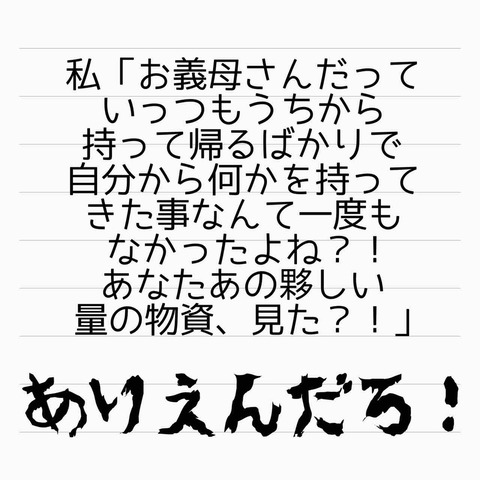 私「お義母さんだって
いっつもうちから
持って帰るばかりで
自分から何かを持って
きた事なんて一度も
なかったよね？！
あなたあの夥しい
量の物資、見た？！」
ありえんだろ！